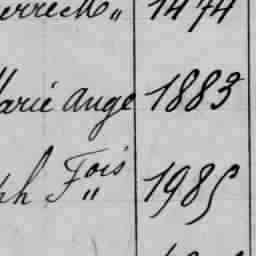 ierre M„ 1474
Marie Ange 1883
ph Fois„ 1985